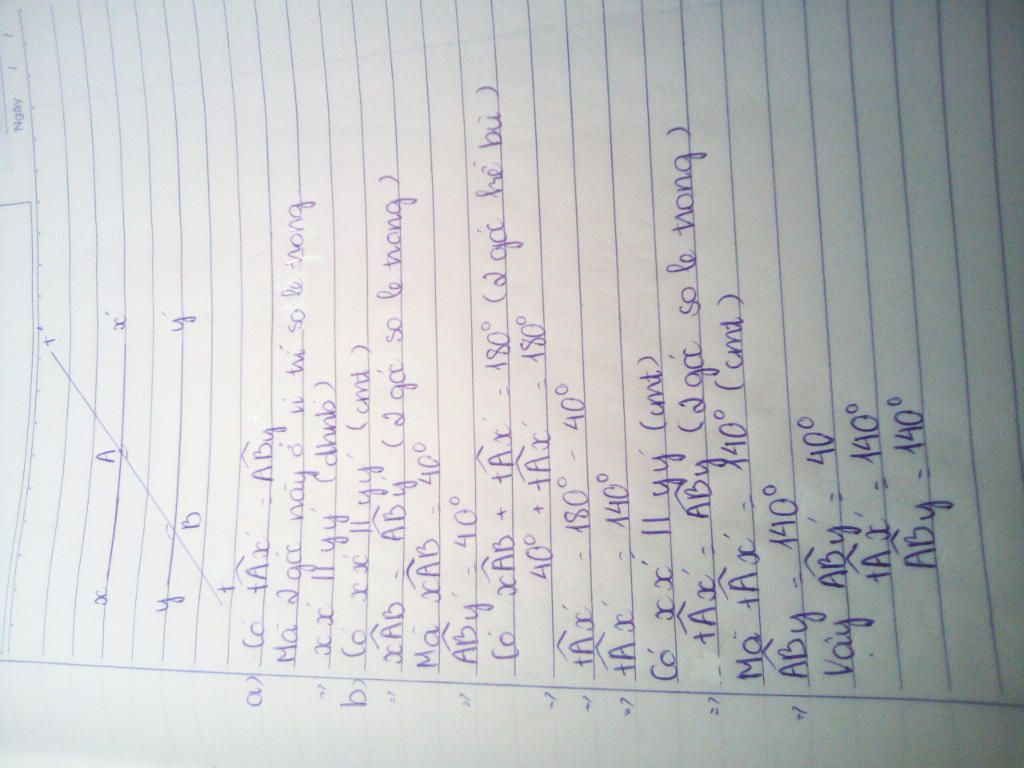 Ngày / /
t'
x A x'
y B y'
t
a) Có tAx' = ABy
Mà 2 góc này ở vị trí so le trong
=> xx' // yy' (dhnb)
b) Có xx' // yy' (cmt)
=> xAB = ABy' (2 góc so le trong)
Mà xAB = 40°
=> ABy' = 40°
Có xAB + tAx' = 180° (2 góc kề bù)
=> 40° + tAx' = 180°
=> tAx' = 180° - 40°
=> tAx' = 140°
Có xx' // yy' (cmt)
=> tAx' = ABy (2 góc so le trong)
Mà tAx' = 140° (cmt)
=> ABy = 140°
Vậy ABy' = 40°
tAx' = 140°
ABy = 140°